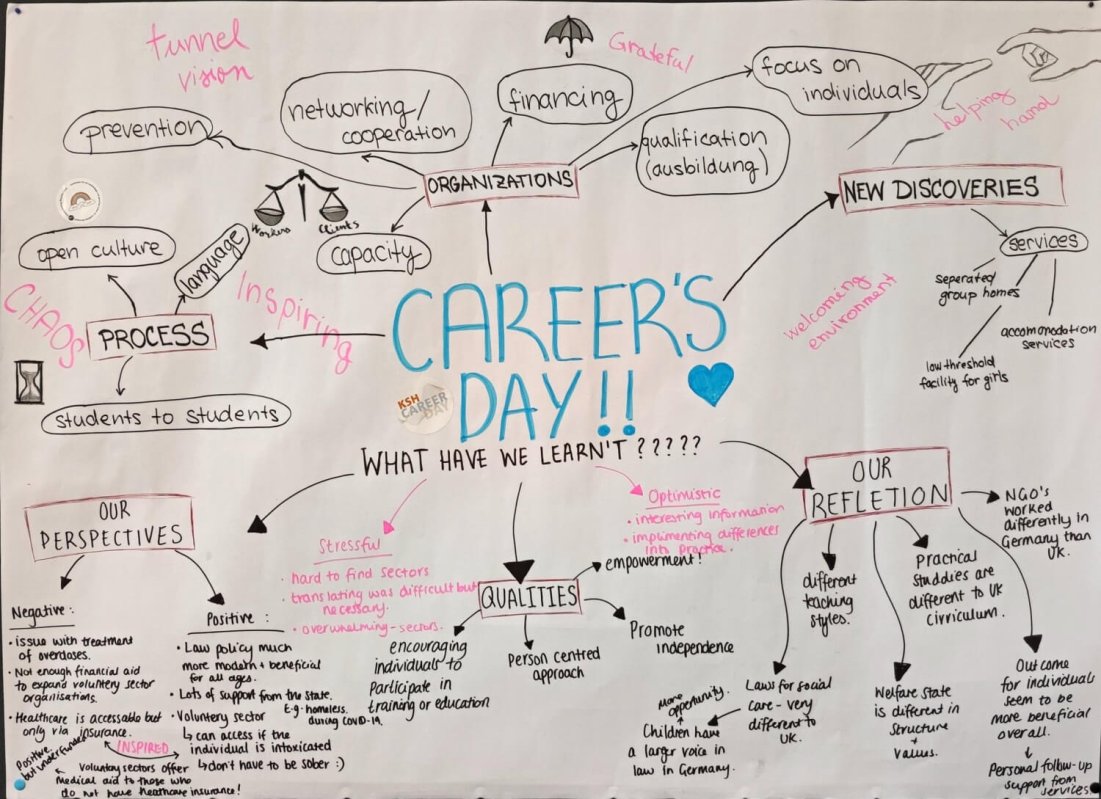 tunnel
vision
Grateful
focus on
individuals
helping
hand
prevention
networking/
cooperation
financing
qualification
(ausbildung)
ORGANIZATIONS
NEW DISCOVERIES
Workers
Clients
capacity
open culture
language
services
seperated
group homes
accomonodation
services
low threshold
facility for girls
welcoming
environment
CHAOS
PROCESS
Inspiring
students to students
CAREER'S
DAY!!
KSH
CAREER
DAY
WHAT HAVE WE LEARN'T ?????
OUR
PERSPECTIVES
Negative:
• issue with treatment
of overdoses.
• Not enough financial aid
to expand voluntery sector
organisations.
• Healthcare is accessable but
only via insurance.
Positive
but underfunded
INSPIRED
Voluntary sectors offer
medical aid to those who
do not have heathcare insurance!
Positive:
• Law policy much
more modern + beneficial
for all ages.
• Lots of support from the state.
E.g. homeless
during COVID-19.
• Voluntery sector
↳ can access if the
individual is intoxicated
↳ don't have to be sober :)
Stressful
• hard to find sectors
• translating was difficult but
necessary.
• overwhelming - sectors.
Optimistic
• interesting information
• implimenting differences
into practice.
QUALITIES
empowerment!
Promote
independence
Person centred
approach
encouraging
individuals to
Participate in
training or education
OUR
REFLETION
NGO's
worked
differently in
Germany than
UK.
different
teaching
styles.
Practical
studdies are
different to UK
cirriculum.
Laws for social
care - very
different to
UK.
more
opportunity.
Children have
a larger voice in
law in Germany.
Welfare state
is different in
Structure
+
values.
Out come
for individuals
seem to be
more beneficial
over all.
↓
Personal follow-up
support from
services